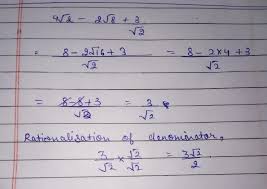 4√2 - 2√8 + 3/√2
= 8 - 2√16 + 3 / √2 = 8 - 2×4 + 3 / √2
= 8 - 8 + 3 / √2 = 3/√2
Rationalisation of denominator,
3/√2 × √2/√2 = 3√2/2